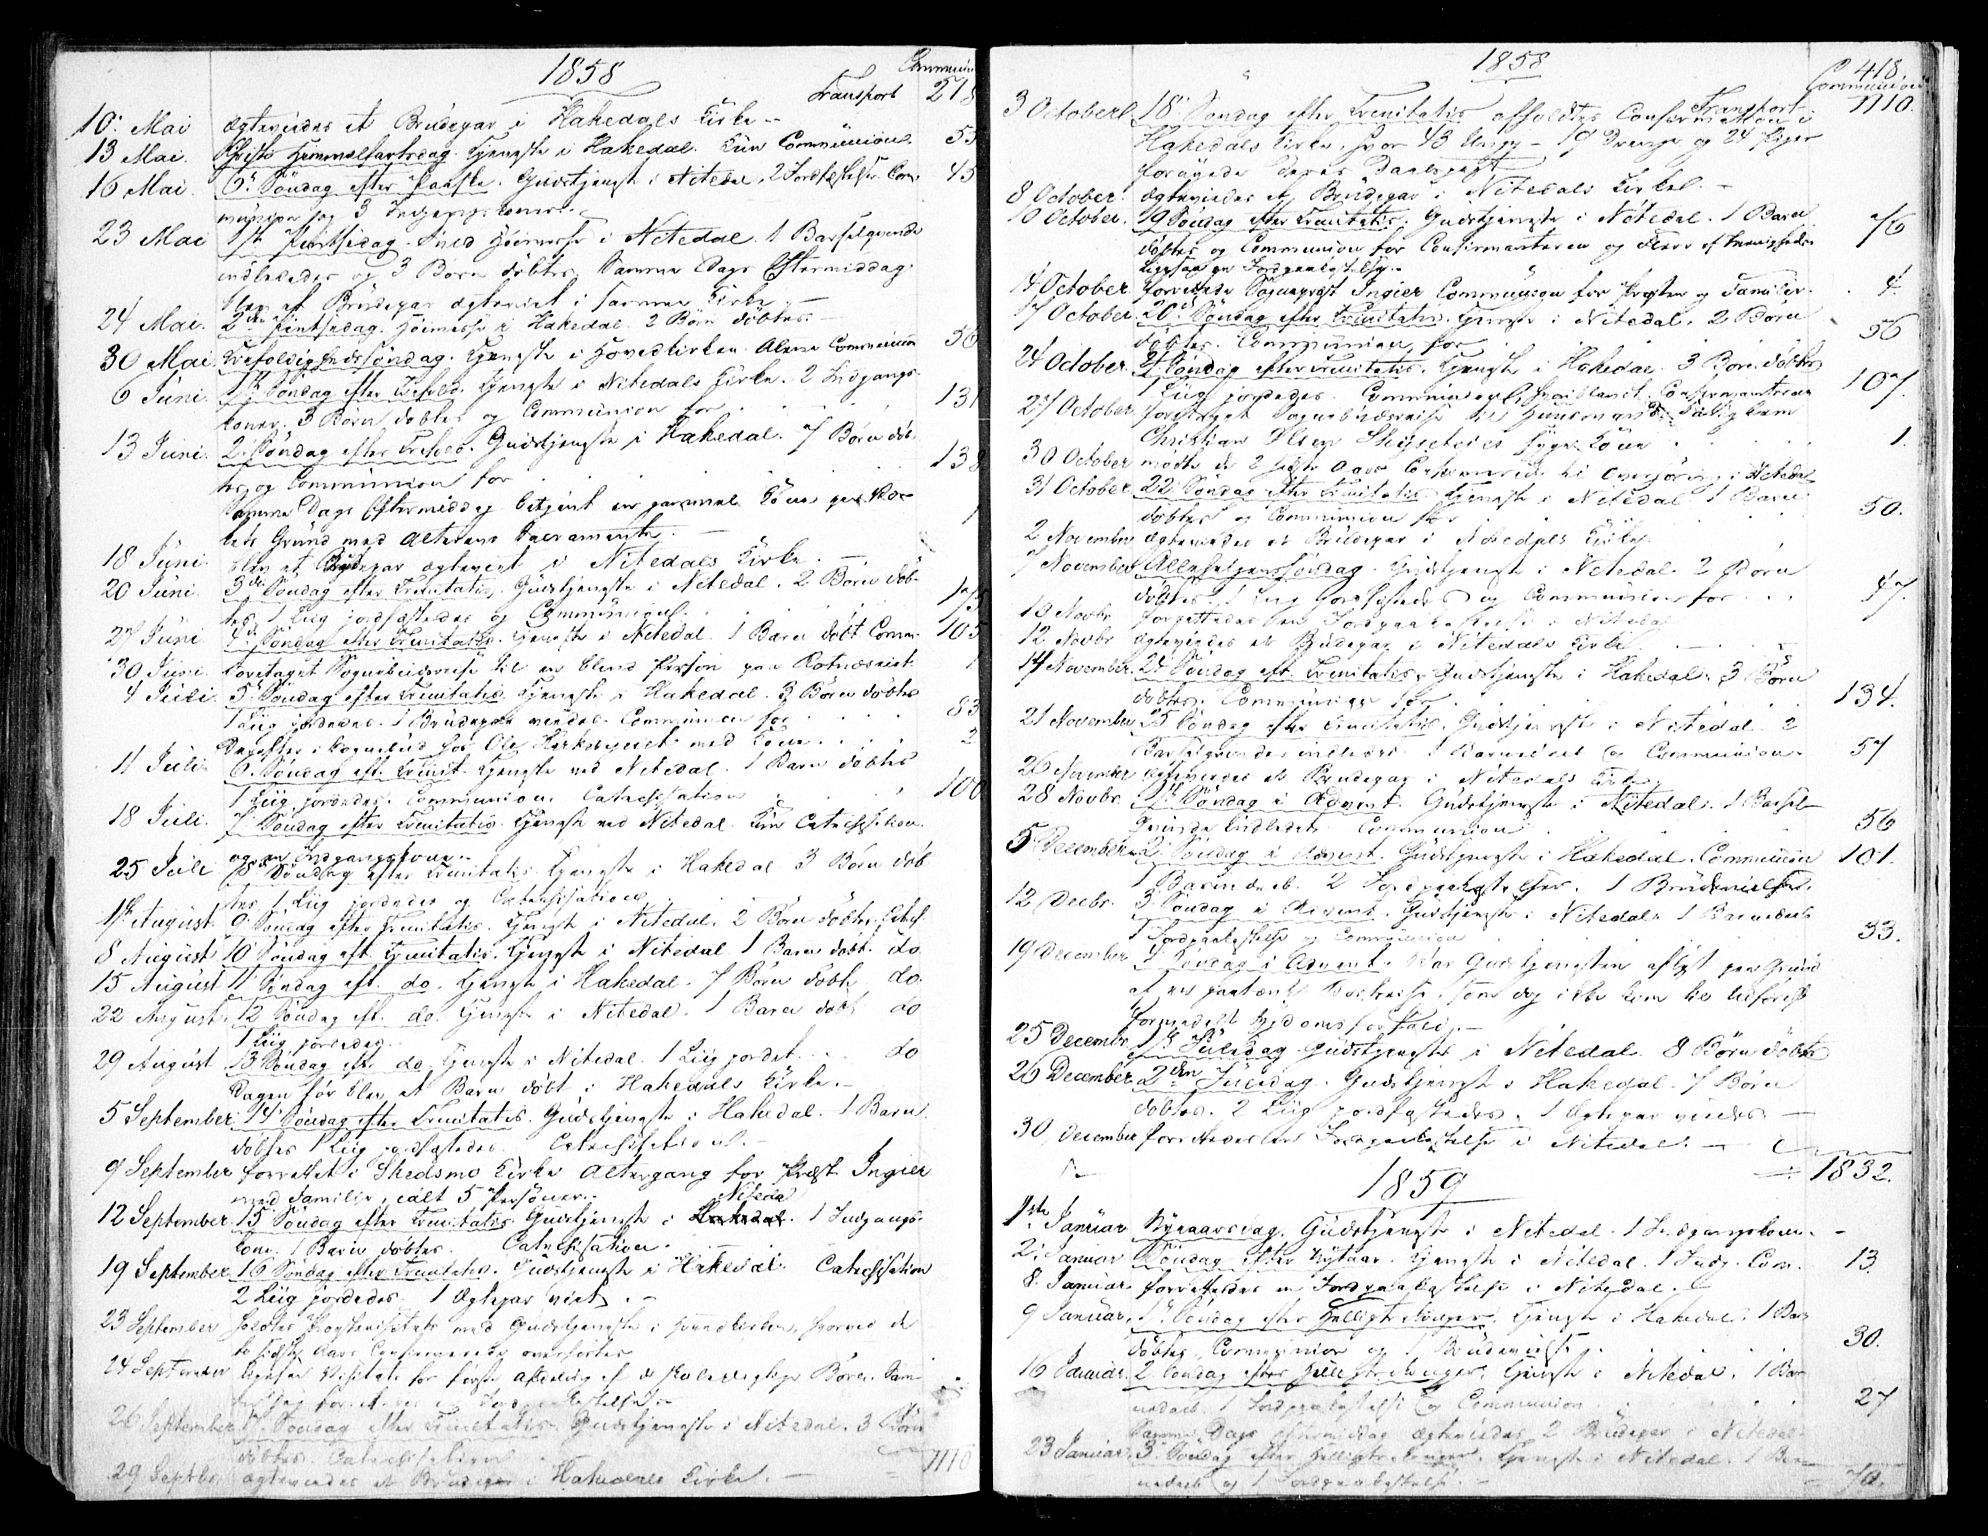 1858
Communion
Transport 218
10. Mai ægteviedes et Brudepar i Hakedals Kirke
13 Mai. Christi Himmelfartsdag. Tjeneste i Hakedal. Kun Communion. 53
16 Mai. 6. Søndag efter Paaske. Gudstjeneste i Nitedal, 2 Jordfæstelser. Com- 45
munion og 3 Indgangskoner.
23 Mai 1ste Pintsedag. med Høimesse i Nitedal. 1 Barselqvinde
indlededes og 3 Børn døbtes. Samme Dags Eftermiddag
blev et Brudepar ægteviet i samme Kirke.
24 Mai. 2den Pintsedag. Høimesse i Hakedal. 2 Børn døbtes.
30 Mai. Trefoldighedssøndag. Tjeneste i Hovedkirken. Alene Communion 56
6 Juni. 1ste Søndag efter Trefold. Tjeneste i Nitedals Kirke. 2 Indgangs-
koner. 3 Børn døbtes og Communion for 131
13 Juni. 2. Søndag efter Trefold. Gudstjeneste i Hakedal. 7 Børn døb-
tes og Communion for 138
Samme Dags Eftermiddag betjent en gammel Kone paa
Grund med Alterens Sacramente. 1
18 Juni. blev et Brudepar ægteviet i Nitedals Kirke.
20 Juni. 3die Søndag efter Trinitatis. Gudstjeneste i Nitedal. 2 Børn døb-
tes 1 Liig jordfæstedes og Communion.
27 Juni 4de Søndag efter Trinitatis. Tjeneste i Nitedal. 1 Barn døbt Comm. 105
30 Juni. foretaget Sognebudsreise til en blind Person paa Rotnæseiet 1
4 Juli. 5. Søndag efter Trinitatis. Tjeneste i Hakedal. 3 Børn døbtes
1 Liig jordedes. 1 Brudepar viedes. Communion for 83
Derefter i Sognebud for Ole med Kone 2
11 Juli. 6. Søndag eft. Trinit. Tjeneste ved Nitedal. 1 Barn døbtes
1 Liig jordedes. Communion. Catechisation 100
18 Juli. 7. Søndag efter Trinitatis. Tjeneste ved Nitedal. Kun Catechisation
og en Indgangskone.
25 Juli 8de Søndag efter Trinitatis. Tjeneste i Hakedal 3 Børn døb
tes 1 Liig jordedes og Catechisation
1ste August. 9. Søndag efter Trinitatis. Tjeneste i Nitedal. 2 Børn døbtes. Catech.
8 August 10 Søndag eft. Trinitatis. Tjeneste i Nitedal 1 Barn døbt. do
15 August 11 Søndag eft. do. Tjeneste i Hakedal. 7 Børn døbt. do.
22 August. 12 Søndag eft. do. Tjeneste i Nitedal. 1 Barn døbt do
1 Liig jordedes.
29 August 13 Søndag eft. do Tjeneste i Nitedal. 1 Liig jordet. do
Dagen før blev et Barn døbt i Hakedals Kirke.
5 September 14 Søndag efter Trinitatis. Gudstjeneste i Hakedal. 1 Barn
døbtes 1 Liig jordfæstedes. Catechisation.
9 September forrettet i Skedsmo Kirke Altergang for Præst Ingier
med Familie, ialt 5 Personer.
12 September. 15 Søndag efter Trinitatis. Gudstjeneste i Hakedal Nitedal. 1 Indgangs-
kone. 1 Barn døbtes. Catechisation
19 September 16 Søndag efter Trinitatis. Gudstjeneste i Hakedal. Catechisation
2 Liig jordedes. 1 Ægtepar viet.
23 September holdtes Provstevisitats med Gudstjeneste i Hovedkirken, hvorved de
to sidste Aars Confirmerede overhørtes
24 September Visitats for første Afdeling af de Børn. Sam-
26 September 17. Søndag efter Trinitatis. Gudstjeneste i Nitedal. 3 Børn
døbtes. Catechisation
29 Septbr ægteviedes et Brudepar i Hakedals Kirke. 1110
1858
418.
Communion
Transport 1110.
3 October 18 Søndag efter Trinitatis afholdtes Confirmation i
Hakedals Kirke, hvor 43 Unge - 19 Drenge og 24 Piger
fornyede deres Daabspagt
8 October. ægteviedes et Brudepar i Nitedals Kirke.
10 October. 19 Søndag efter Trinitatis. Gudstjeneste i Nitedal. 1 Barn
døbtes og Communion for Confirmanterne og Flere af Menigheden 76
Ligesaa en Jordpaakastelse.
14 October forrettede Sognepræst Ingier Communion for Præsten og Familie. 4.
17 October. 20de Søndag efter Trinitatis. Tjeneste i Nitedal. 2 Børn
døbtes. Communion for 56
24 October. 21 Søndag efter Trinitatis. Tjeneste i Hakedal. 3 Børn døbtes
1 Liig jordedes. Communion, hvoriblandt Confirmanterne 107.
27 October foretaget Sognebudsreise til Huusmand
Christian Olsen syge Kone 1.
30 October mødte de 2 sidste Aars Confirmerede til Overhøring i Nitedal
31 October. 22 Søndag efter Trinitatis Tjeneste i Nitedal 1 Barn
døbtes og Communion for 50.
2 November ægteviedes et Brudepar i Nitedals Kirke.
7 November Allehelgenssøndag. Gudstjeneste i Nitedal. 2 Børn
døbtes 1 Liig jordfæstedes og Communion for 47.
10 Novbr forrettedes en Jordpaakastelse i Nitedal
12 Novbr ægteviedes et Brudepar i Nitedals Kirke.
14 November. 24 Søndag eft. Trinitatis. Gudstjeneste i Hakedal. 3 Børn
døbtes. Communion for 134.
21 November 25 Søndag efter Trinitatis. Gudstjeneste i Nitedal. 2
Barselqvinder indledet. 1 Barnedaab og Communion. 57
26 November ægteviedes et Brudepar i Nitedals Kirke.
28 Novbr. 1ste Søndag i Advent. Gudstjeneste i Nitedal. 1 Barsel-
qvinde indledet. Communion 56
5 December. 2. Søndag i Advent. Gudstjeneste i Hakedal. Communion 101.
1 Barnedaab. 2 Jordpaakastelser. 1 Brudevielse.
12 Decbr. 3. Søndag i Advent. Gudstjeneste i Nitedal. 1 Barnedaab
1 Jordpaakastelse og Communion 33.
19 December 4 Søndag i Advent. Var Gudstjenesten aflyst paa Grund
af en paatænkt Bortreise, som dog ikke kom til Udførelse
formedelst Sygdomsforfald.
25 Decembr 1ste Juledag. Gudstjeneste i Nitedal. 8 Børn døbtes
26 December 2den Juledag. Gudstjeneste i Hakedal. 7 Børn
døbtes. 2 Liig jordfæstedes. 1 Ægtepar viedes.
30 December forrettedes en Jordpaakastelse i Nitedal.
1832.
1859
1ste Januar Nytaarsdag. Gudstjeneste i Nitedal. 1 Indgangskone.
2. Januar Søndag efter Nytaar. Tjeneste i Nitedal. 1 Indg. Com. 13.
8. Januar forrettedes en Jordpaakastelse i Nitedal.
9 Januar. 1ste Søndag efter Helligtrekonger. Tjeneste i Hakedal. 1 Barn
døbtes, Communion og 1 Brudevielse. 30.
16 Januar. 2 Søndag efter Helligtrekonger. Tjeneste i Nitedal. 1 Bar-
nedaab. 1 Jordpaakastelse og Communion 27
Samme Dags Eftermiddag ægteviedes 2 Brudepar i Nitedal.
23 Januar. 3. Søndag efter Helligtrekonger. Tjeneste i Nitedal. 1 Bar-
nedaab og 1 Jordpaakastelse. 70.